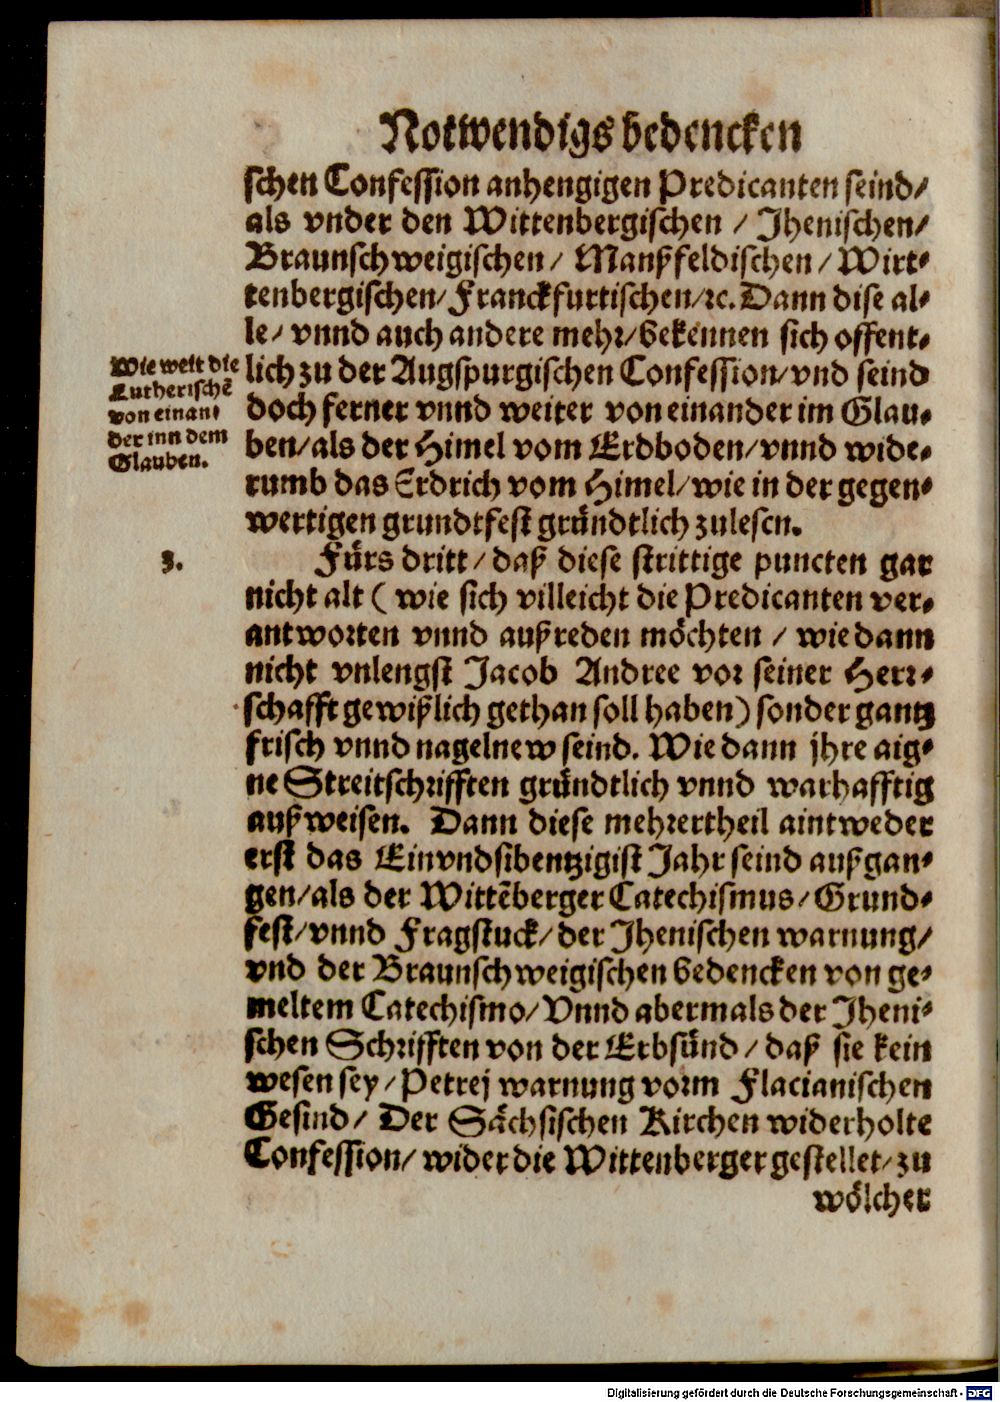 Notwendigs bedencken
schen Confession anhengigen Predicanten seind/
als vnder den Wittenbergischen / Jhenischen/
Braunschweigischen/ Manßfeldischen/ Wirt⸗
tenbergischen/ Franckfurtischen/ ꝛc. Dann dise al⸗
le/ vnnd auch andere mehr/ bekennen sich offent⸗
lich zu der Augspurgischen Confession/ vnd seind
doch ferner vnnd weiter von einander im Glau⸗
ben/ als der Himel vom Erdboden/ vnnd wide⸗
rumb das Erdrich vom Himel/ wie in der gegen⸗
wertigen grundtfest gründtlich zulesen.
Wie weit die
Lutherischē
von einan⸗
der inn dem
Glauben.
3.
Fürs dritt/ daß diese strittige puncten gar
nicht alt ( wie sich villeicht die Predicanten ver⸗
antworten vnnd außreden möchten / wie dann
nicht vnlengst Jacob Andree vor seiner Herr⸗
schafft gewißlich gethan soll haben) sonder gantz
frisch vnnd nagelnew seind. Wie dann jhre aig⸗
ne Streitschrifften gründtlich vnnd warhafftig
außweisen. Dann diese mehrertheil aintweder
erst das Einvndsibentzigist Jahr seind außgan⸗
gen/ als der Wittēberger Catechismus/ Grund⸗
fest/ vnnd Fragstuck/ der Jhenischen warnung/
vnd der Braunschweigischen bedencken von ge⸗
meltem Catechismo/ Vnnd abermals der Jheni⸗
schen Schrifften von der Erbsünd/ daß sie kein
wesen sey/ Petrej warnung vorm Flacianischen
Gesind/ Der Sächsischen Kirchen widerholte
Confession/ wider die Wittenberger gestellet/ zu
wölcher
Digitalisierung gefördert durch die Deutsche Forschungsgemeinschaft - DFG